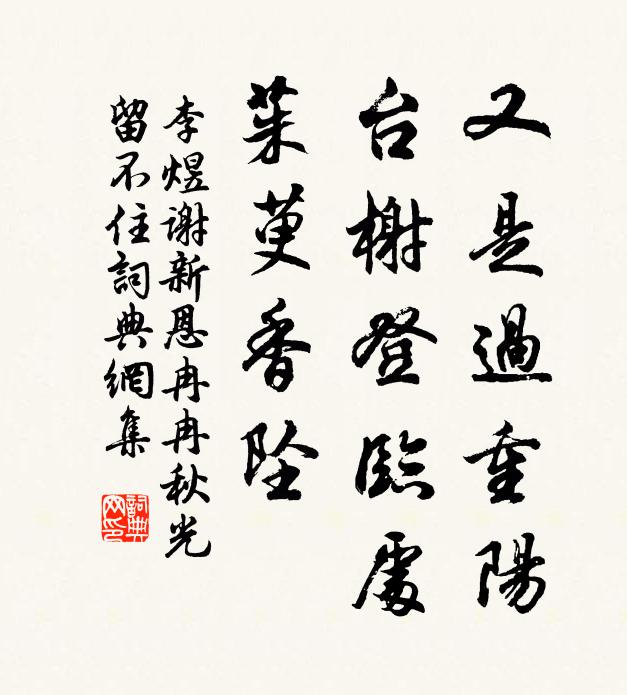 又是過重陽
台榭登臨處
茱萸香坠
李煜謝新恩冉冉秋光
留不住詞典網集
詞典
网印